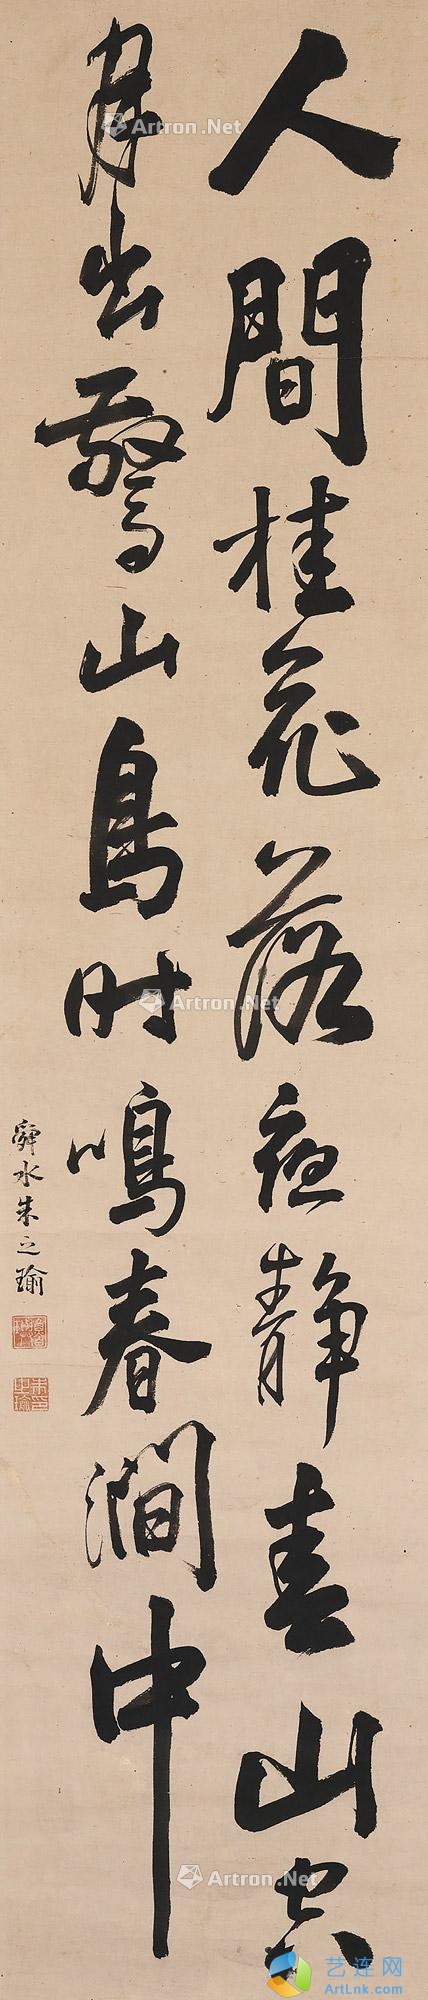 人間桂花落夜静春山空
月出驚山鳥时鳴春澗中
舜水朱之瑜
Artron.Net
Artron.Net
Artron.Net
Artron.Net
Artron.Net
艺连网
ArtLink.com